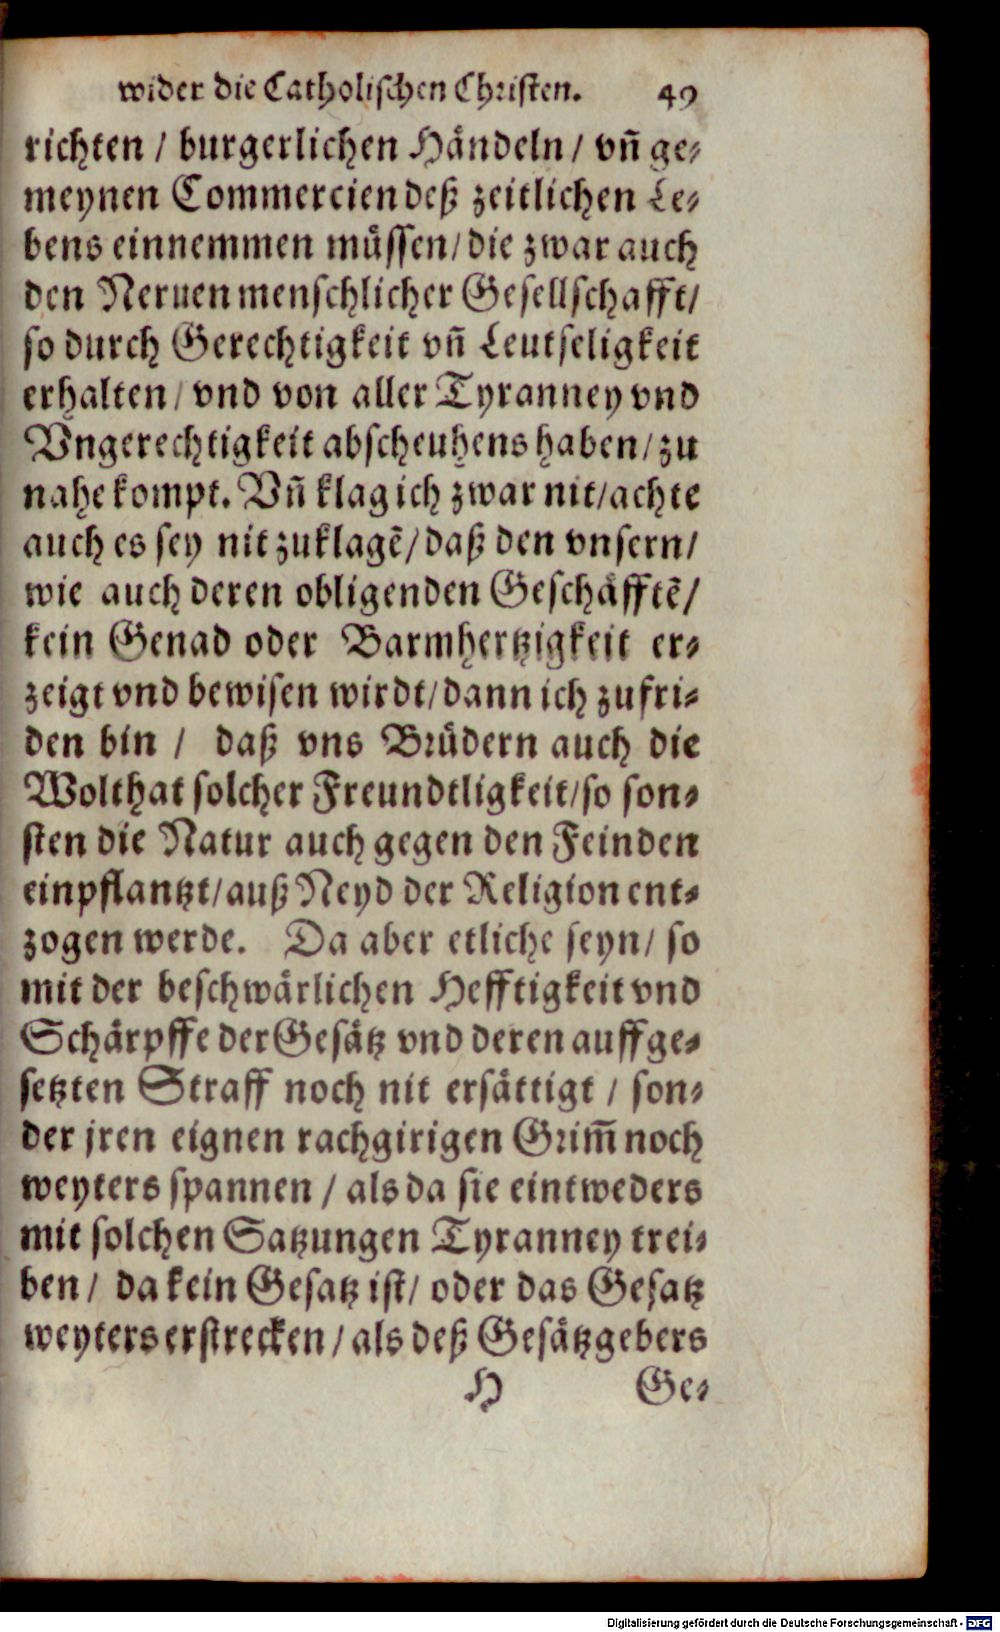 wider die Catholischen Christen. 49
richten / burgerlichen Händeln / vn̄ ge⸗
meynen Commercien deß zeitlichen Le⸗
bens einnemmen müssen / die zwar auch
den Neruen menschlicher Gesellschafft /
so durch Gerechtigkeit vn̄ Leutseligkeit
erhalten / vnd von aller Tyranney vnd
Vngerechtigkeit abscheuhens haben / zu
nahe kompt. Vn̄ klag ich zwar nit / achte
auch es sey nit zuklagē / daß den vnsern /
wie auch deren obligenden Geschäfftē /
kein Genad oder Barmhertzigkeit er⸗
zeigt vnd bewisen wirdt / dann ich zufri⸗
den bin / daß vns Brüdern auch die
Wolthat solcher Freundtligkeit / so son⸗
sten die Natur auch gegen den Feinden
einpflantzt / auß Neyd der Religion ent⸗
zogen werde. Da aber etliche seyn / so
mit der beschwärlichen Hefftigkeit vnd
Schärpffe der Gesätz vnd deren auffge⸗
setzten Straff noch nit ersättigt / son⸗
der jren eignen rachgirigen Grim̄ noch
weyters spannen / als da sie eintweders
mit solchen Satzungen Tyranney trei⸗
ben / da kein Gesatz ist / oder das Gesatz
weyters erstrecken / als deß Gesätzgebers
H Ge⸗
Digitalisierung gefördert durch die Deutsche Forschungsgemeinschaft - DFG